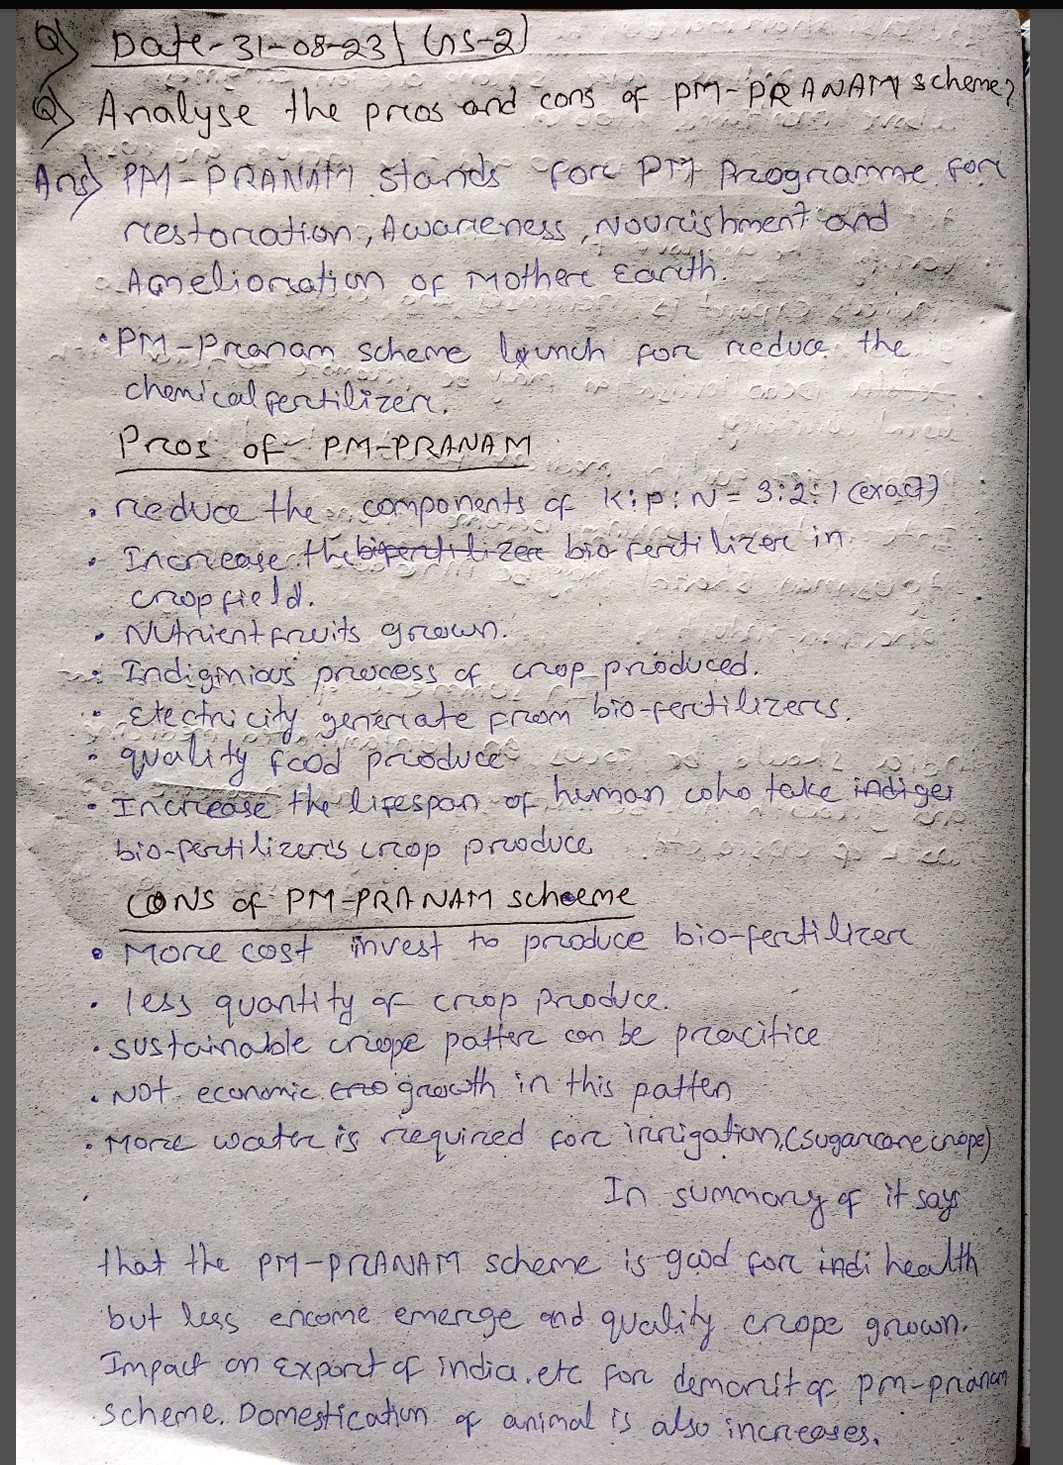 Q) Date-31-08-23 (GS-2)
Q) Analyse the pros and cons of PM-PRANAM scheme?
Ans) PM-PRANAM stands for PM Programme for
restoration, Awareness, Nourishment and
Amelioration of Mother Earth.
• PM-Pranam scheme launch for reduce the
chemical fertilizer.
Pros of PM-PRANAM
• reduce the components of K:P:N = 3:2:1 (exact)
• Increase the biofertilizer bio fertilizer in
crop field.
• Nutrient fruits grown.
• Indiginious process of crop produced.
• Electricity generate from bio-fertilizers.
• quality food produce
• Increase the lifespan of human who take indiges
bio-fertilizers crop produce
CONS of PM-PRANAM scheme
• More cost invest to produce bio-fertilizer
• less quantity of crop produce.
• sustainable crope patter can be pracitice
• NOT economic growth in this patten
• More water is required for irrigation, (sugarcane crope)
In summary of it says
that the PM-PRANAM scheme is good for indi health
but less encome emerge and quality crope grown.
Impact on Export of india. etc for demorit of pm-pranam
scheme. Domestication of animal is also increases.